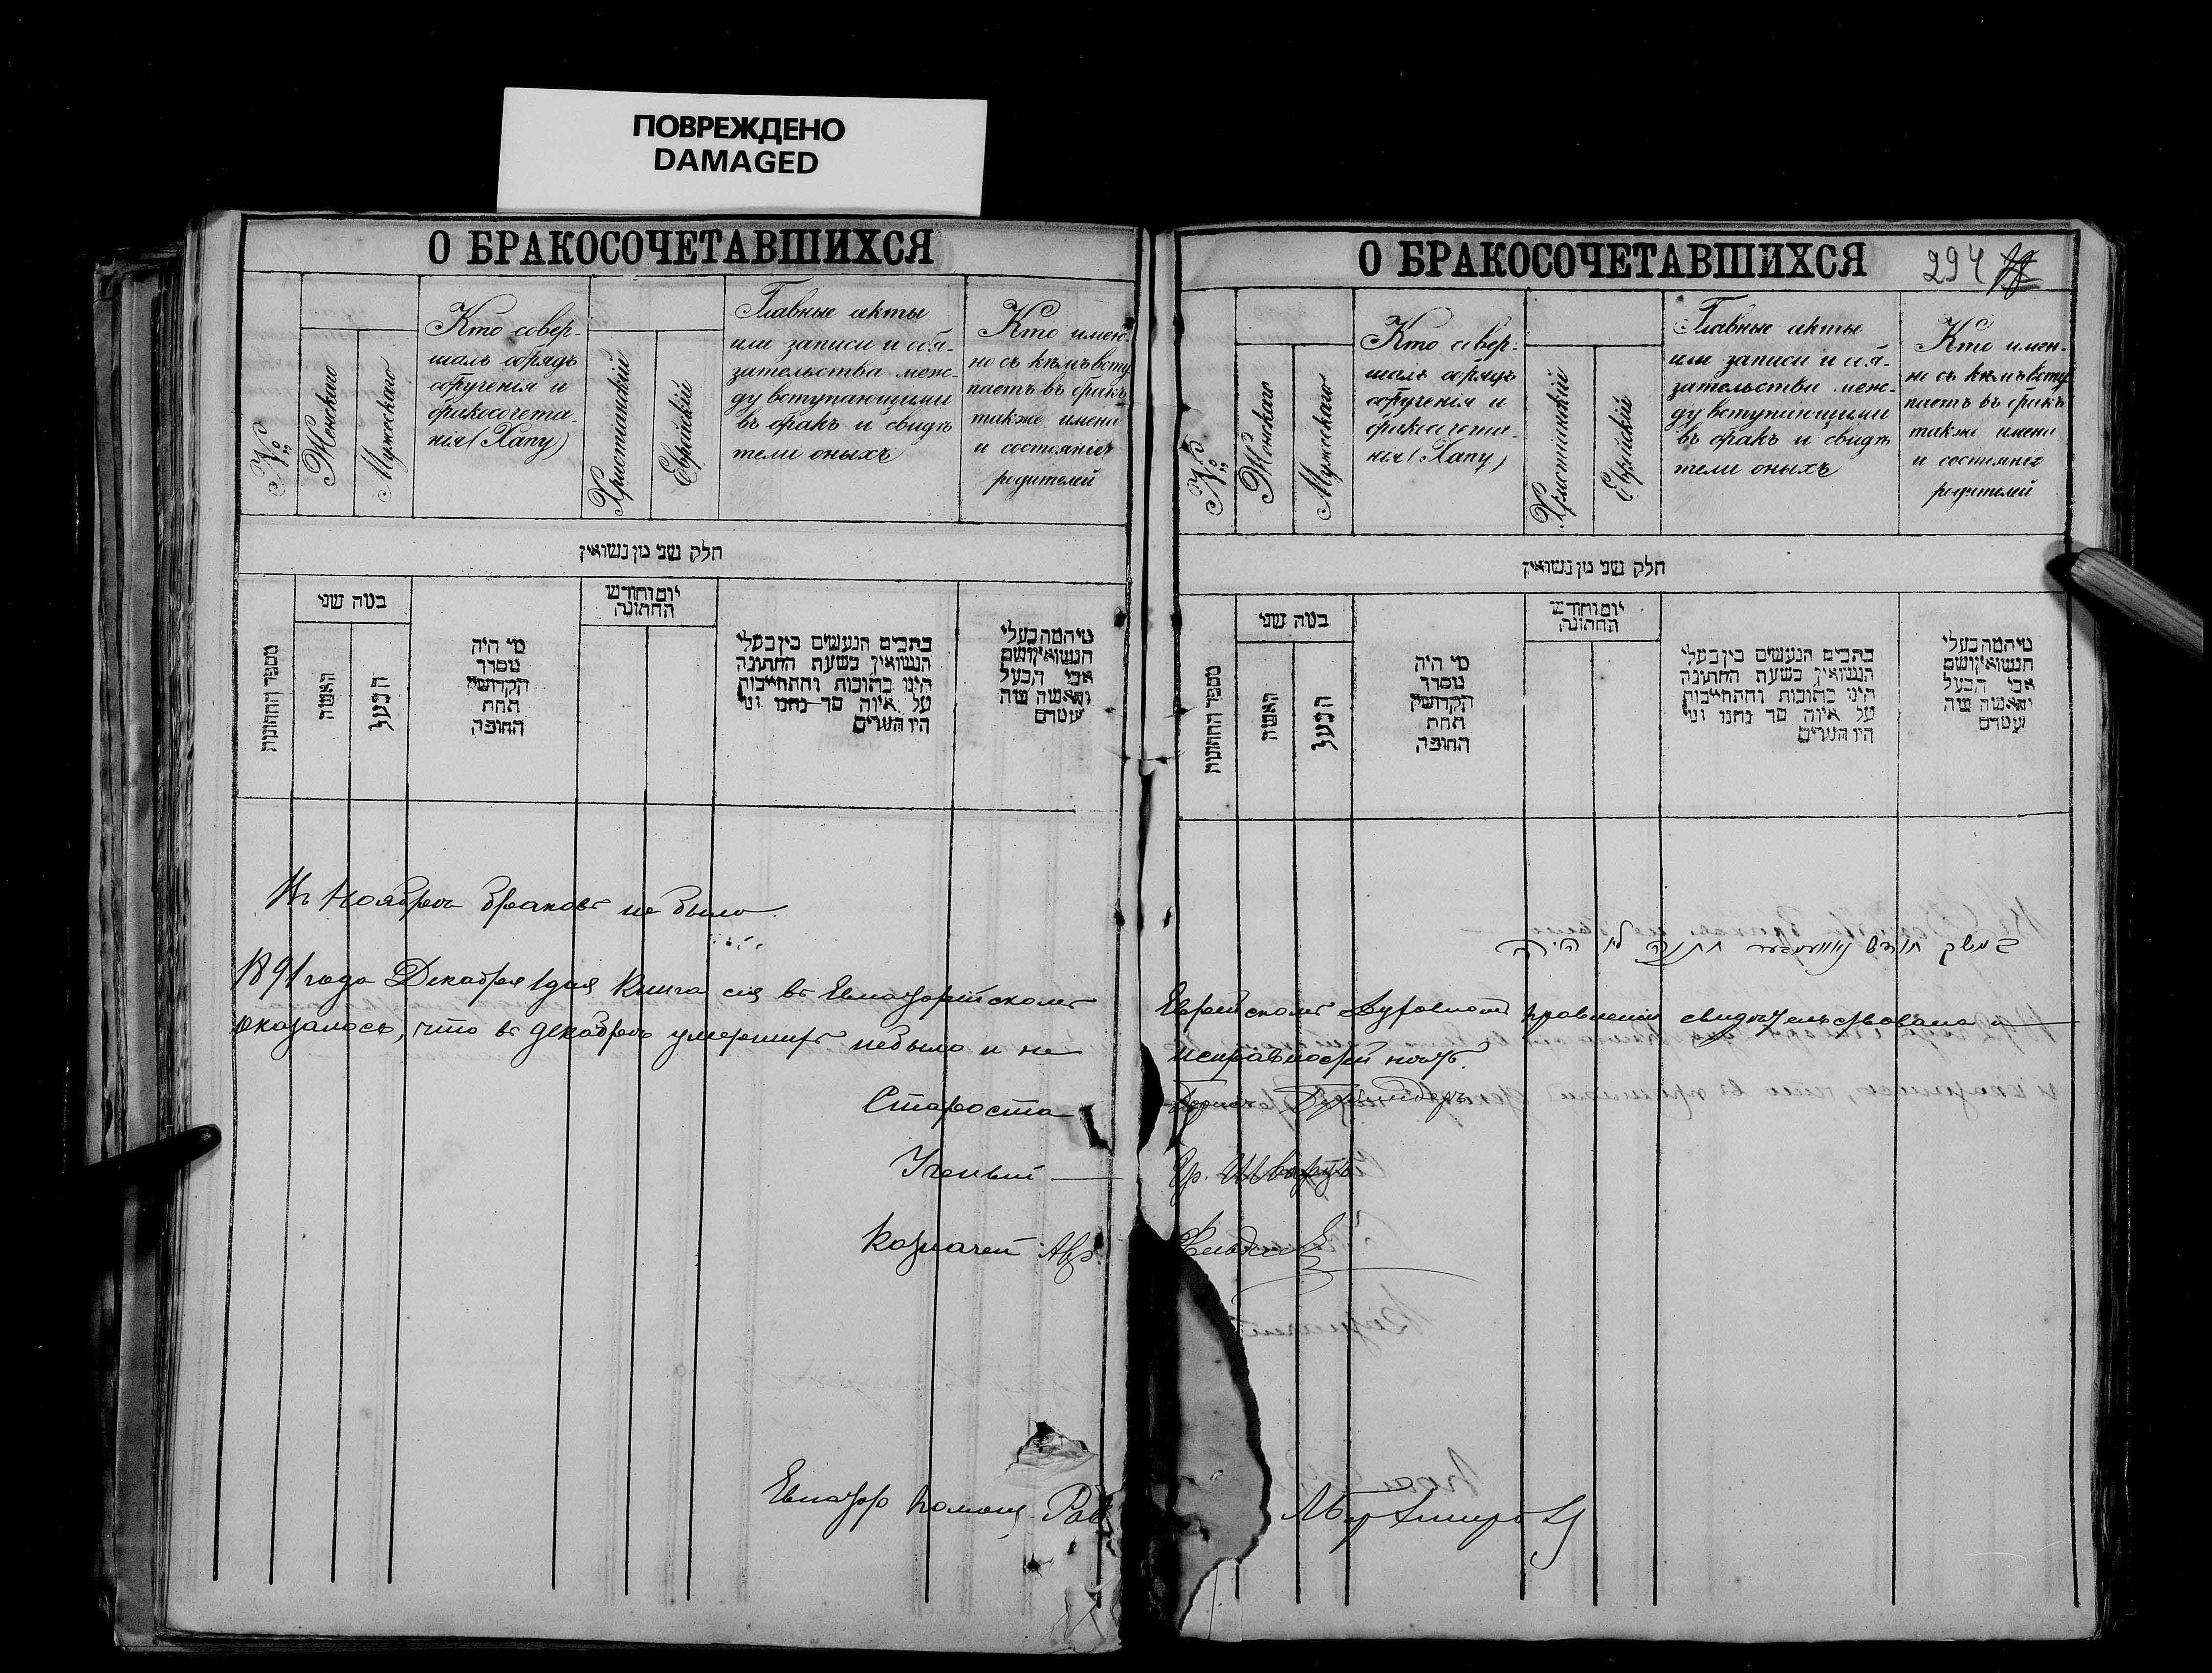 ПОВРЕЖДЕНО
DAMAGED
О БРАКОСОЧЕТАВШИХСЯ
№
Женскаго
Мужескаго
Кто совер-
шалъ обрядъ
обрученія и
бракосочета-
нія (Хапу)
Христіанскій
Еврейскій
Главные акты
или записи и обя-
зательства меж-
ду вступающими
въ бракъ и свидѣ
тели оныхъ
Кто имен-
но съ кѣмъ всту
паетъ въ бракъ
также имена
и состояніе
родителей
חלק שני מן נשואין
מספר החתונות
כמה שני
האשה
הבעל
מי היה
מסדר
הקדושין
תחת
החופה
יום וחודש
החתונה
כתבים הנעשים בין בעלי
הנשואין בשעת החתונה
היינו כתובות והתחייבות
על איזה סך נתנו ומי
היו העדים
מי המה בעלי
הנשואין ושם
אבי הבעל
והאשה ומה
Въ Ноябрѣ браковъ не было.
1891 года Декабря 1 дня Книга сія въ Евпаторійскомъ
оказалось, что въ декабрѣ умершихъ небыло и не
Староста
Ученый
Казначей Авр.
Евпатор помощ. Рав
О БРАКОСОЧЕТАВШИХСЯ
294
№
Женскаго
Мужескаго
Кто совер-
шалъ обрядъ
обрученія и
бракосочета-
нія (Хапу)
Христіанскій
Еврейскій
Главные акты
или записи и обя-
зательства меж-
ду вступающими
въ бракъ и свидѣ
тели оныхъ
Кто имен-
но съ кѣмъ всту
паетъ въ бракъ
также имена
и состояніе
родителей
חלק שני מן נשואין
מספר החתונות
כמה שני
האשה
הבעל
מי היה
מסדר
הקדושין
תחת
החופה
יום וחודש
החתונה
כתבים הנעשים בין בעלי
הנשואין בשעת החתונה
היינו כתובות והתחייבות
על איזה סך נתנו ומי
היו העדים
מי המה בעלי
הנשואין ושם
אבי הבעל
והאשה ומה
חודש חתנה לא היה
Еврейскомъ Духовномъ правленіи свидѣтельствована и
исправностей нѣтъ.
Гр. Шварцъ